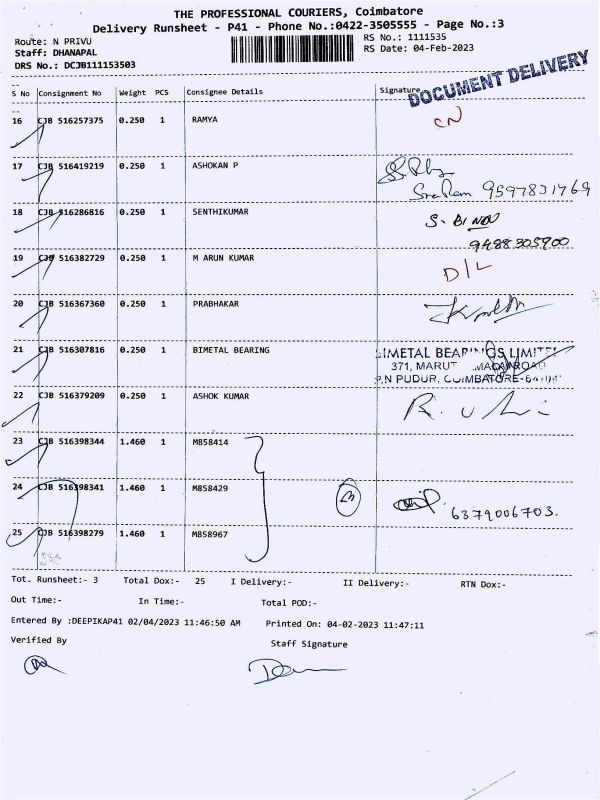 THE PROFESSIONAL COURIERS, Coimbatore
Delivery Runsheet - P41 - Phone No.:0422-3505555 - Page No.:3
Route: N PRIVU RS No.: 1111535
Staff: DHANAPAL RS Date: 04-Feb-2023
DRS No.: DCJB111153503
DOCUMENT DELIVERY
S No Consignment No Weight PCS Consignee Details Signature
16 CJB 516257375 0.250 1 RAMYA CN
17 CJB 516419219 0.250 1 ASHOKAN P
9597831769
18 CJB 516286816 0.250 1 SENTHIKUMAR S. BINDU
9488305900
19 CJB 516382729 0.250 1 M ARUN KUMAR D/L
20 CJB 516367360 0.250 1 PRABHAKAR
21 CJB 516307816 0.250 1 BIMETAL BEARING BIMETAL BEARINGS LIMITED
371, MARUT ROAD
P.N PUDUR, COIMBATORE-
22 CJB 516379209 0.250 1 ASHOK KUMAR
23 CJB 516398344 1.460 1 M858414
24 CJB 516398341 1.460 1 M858429 (3)
6379006703.
25 CJB 516398279 1.460 1 M858967
Tot. Runsheet:- 3 Total Dox:- 25 I Delivery:- II Delivery:- RTN Dox:-
Out Time:- In Time:- Total POD:-
Entered By :DEEPIKAP41 02/04/2023 11:46:50 AM Printed On: 04-02-2023 11:47:11
Verified By Staff Signature